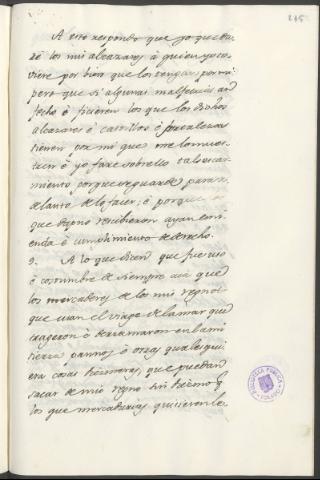 215
A esto respondo que yo guarda-
ré los mis alcazares á quien yo to-
viere por bien que los tengan por mi
pero que si algunas malfetrias an
fecho ó ficieren los que los dichos
alcazares é castillos é fortalezas
tienen por mi que me lo mues-
tren é yo faré sobrello tal escar-
miento porque se guarden para a-
delante de lo facer; é porque
que daño recibieron ayan emi-
enda é cumplimiento de derecho.
9. A lo que dicen que fue uso
é costumbre de siempre acá que
los mercaderes de los mis regnos
que usan el viage de la mar que
trageron é derramaron en la mi
tierra pannos é otras quales qui
era cosas que puedan
sacar de mio regno sin diezmo
los que mercadurias quisieren le-
BIBLIOTECA PUBLICA
TOLEDO